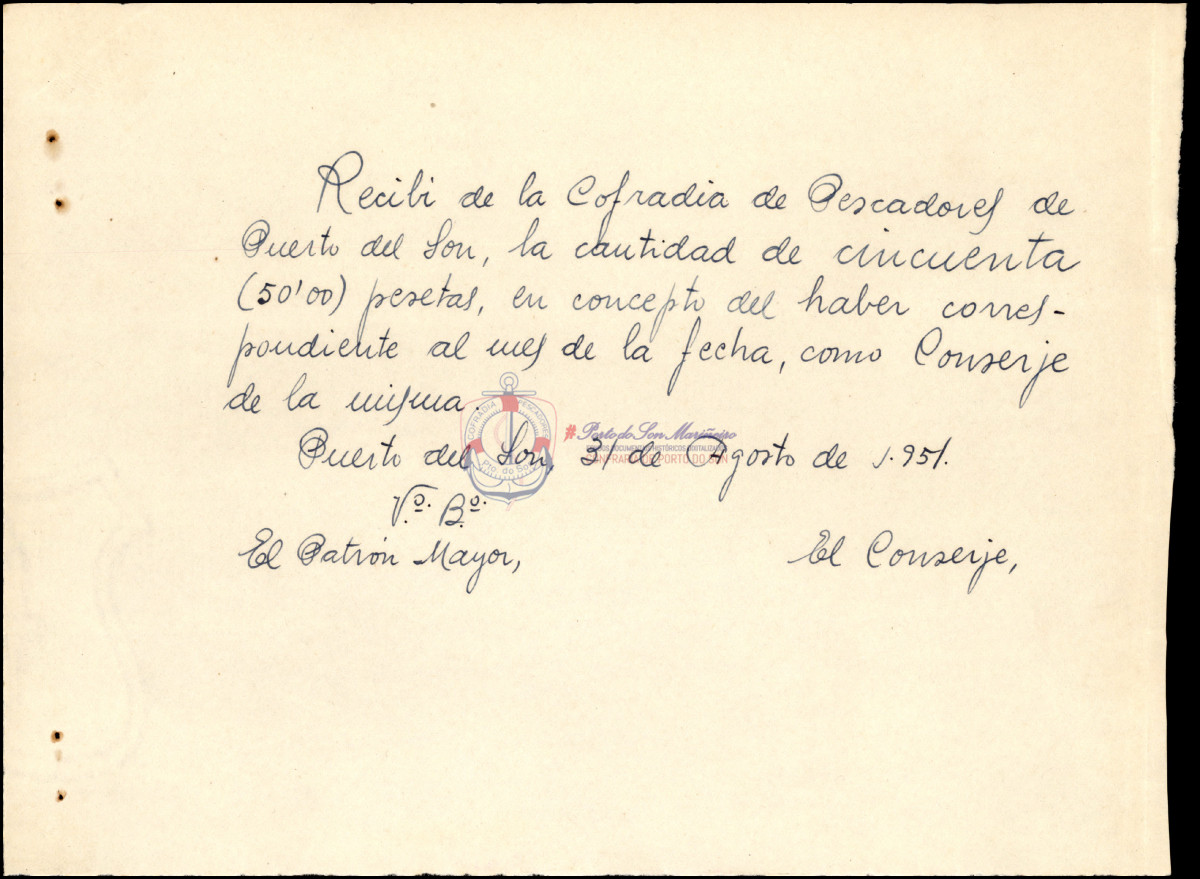 Recibi de la Cofradia de Pescadores de
Puerto del Son, la cantidad de cincuenta
(50'00) pesetas, en concepto del haber corres-
pondiente al mes de la fecha, como Conserje
de la misma.
COFRADIA PESCADORES
Pto. do Son
#Porto do Son Mariñeiro
Puerto del Son, 3 de Agosto de 1.951.
Vº. Bº.
El Patrón Mayor,
El Conserje,